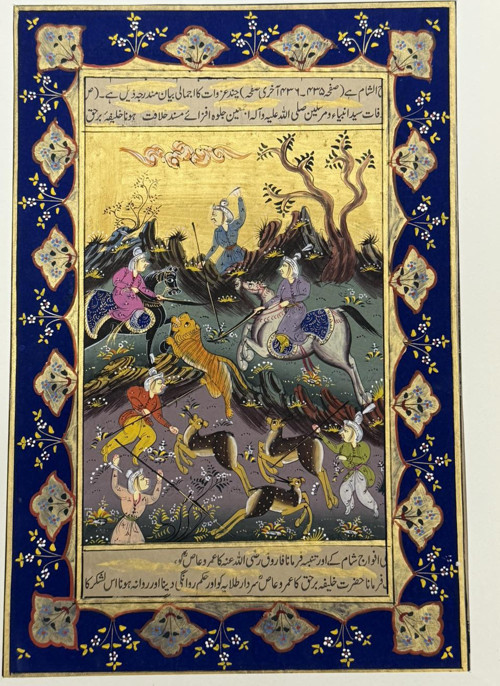 ح الشام ہے (صفحہ ۴۳۵ ـ ۴۳۶ آخری صفحہ) چند غزوات کا اجمالی بیان مندرجہ ذیل ہے ـ (صر
فات سید انبیاء ومرسلین صلی اللہ علیہ وآلہ جلوہ افزائے مسند خلافت ہونا خلیفہ برحق
ی افواج شام کے اور تنبیہ فرمانا فاروق رضی اللہ عنہ کا عمرو عاص کو،
فرمانا حضرت خلیفہ برحق کا عمرو عاص سردار طلایہ کو اور حکم روانگی دینا اور روانہ ہونا اس لشکر کا